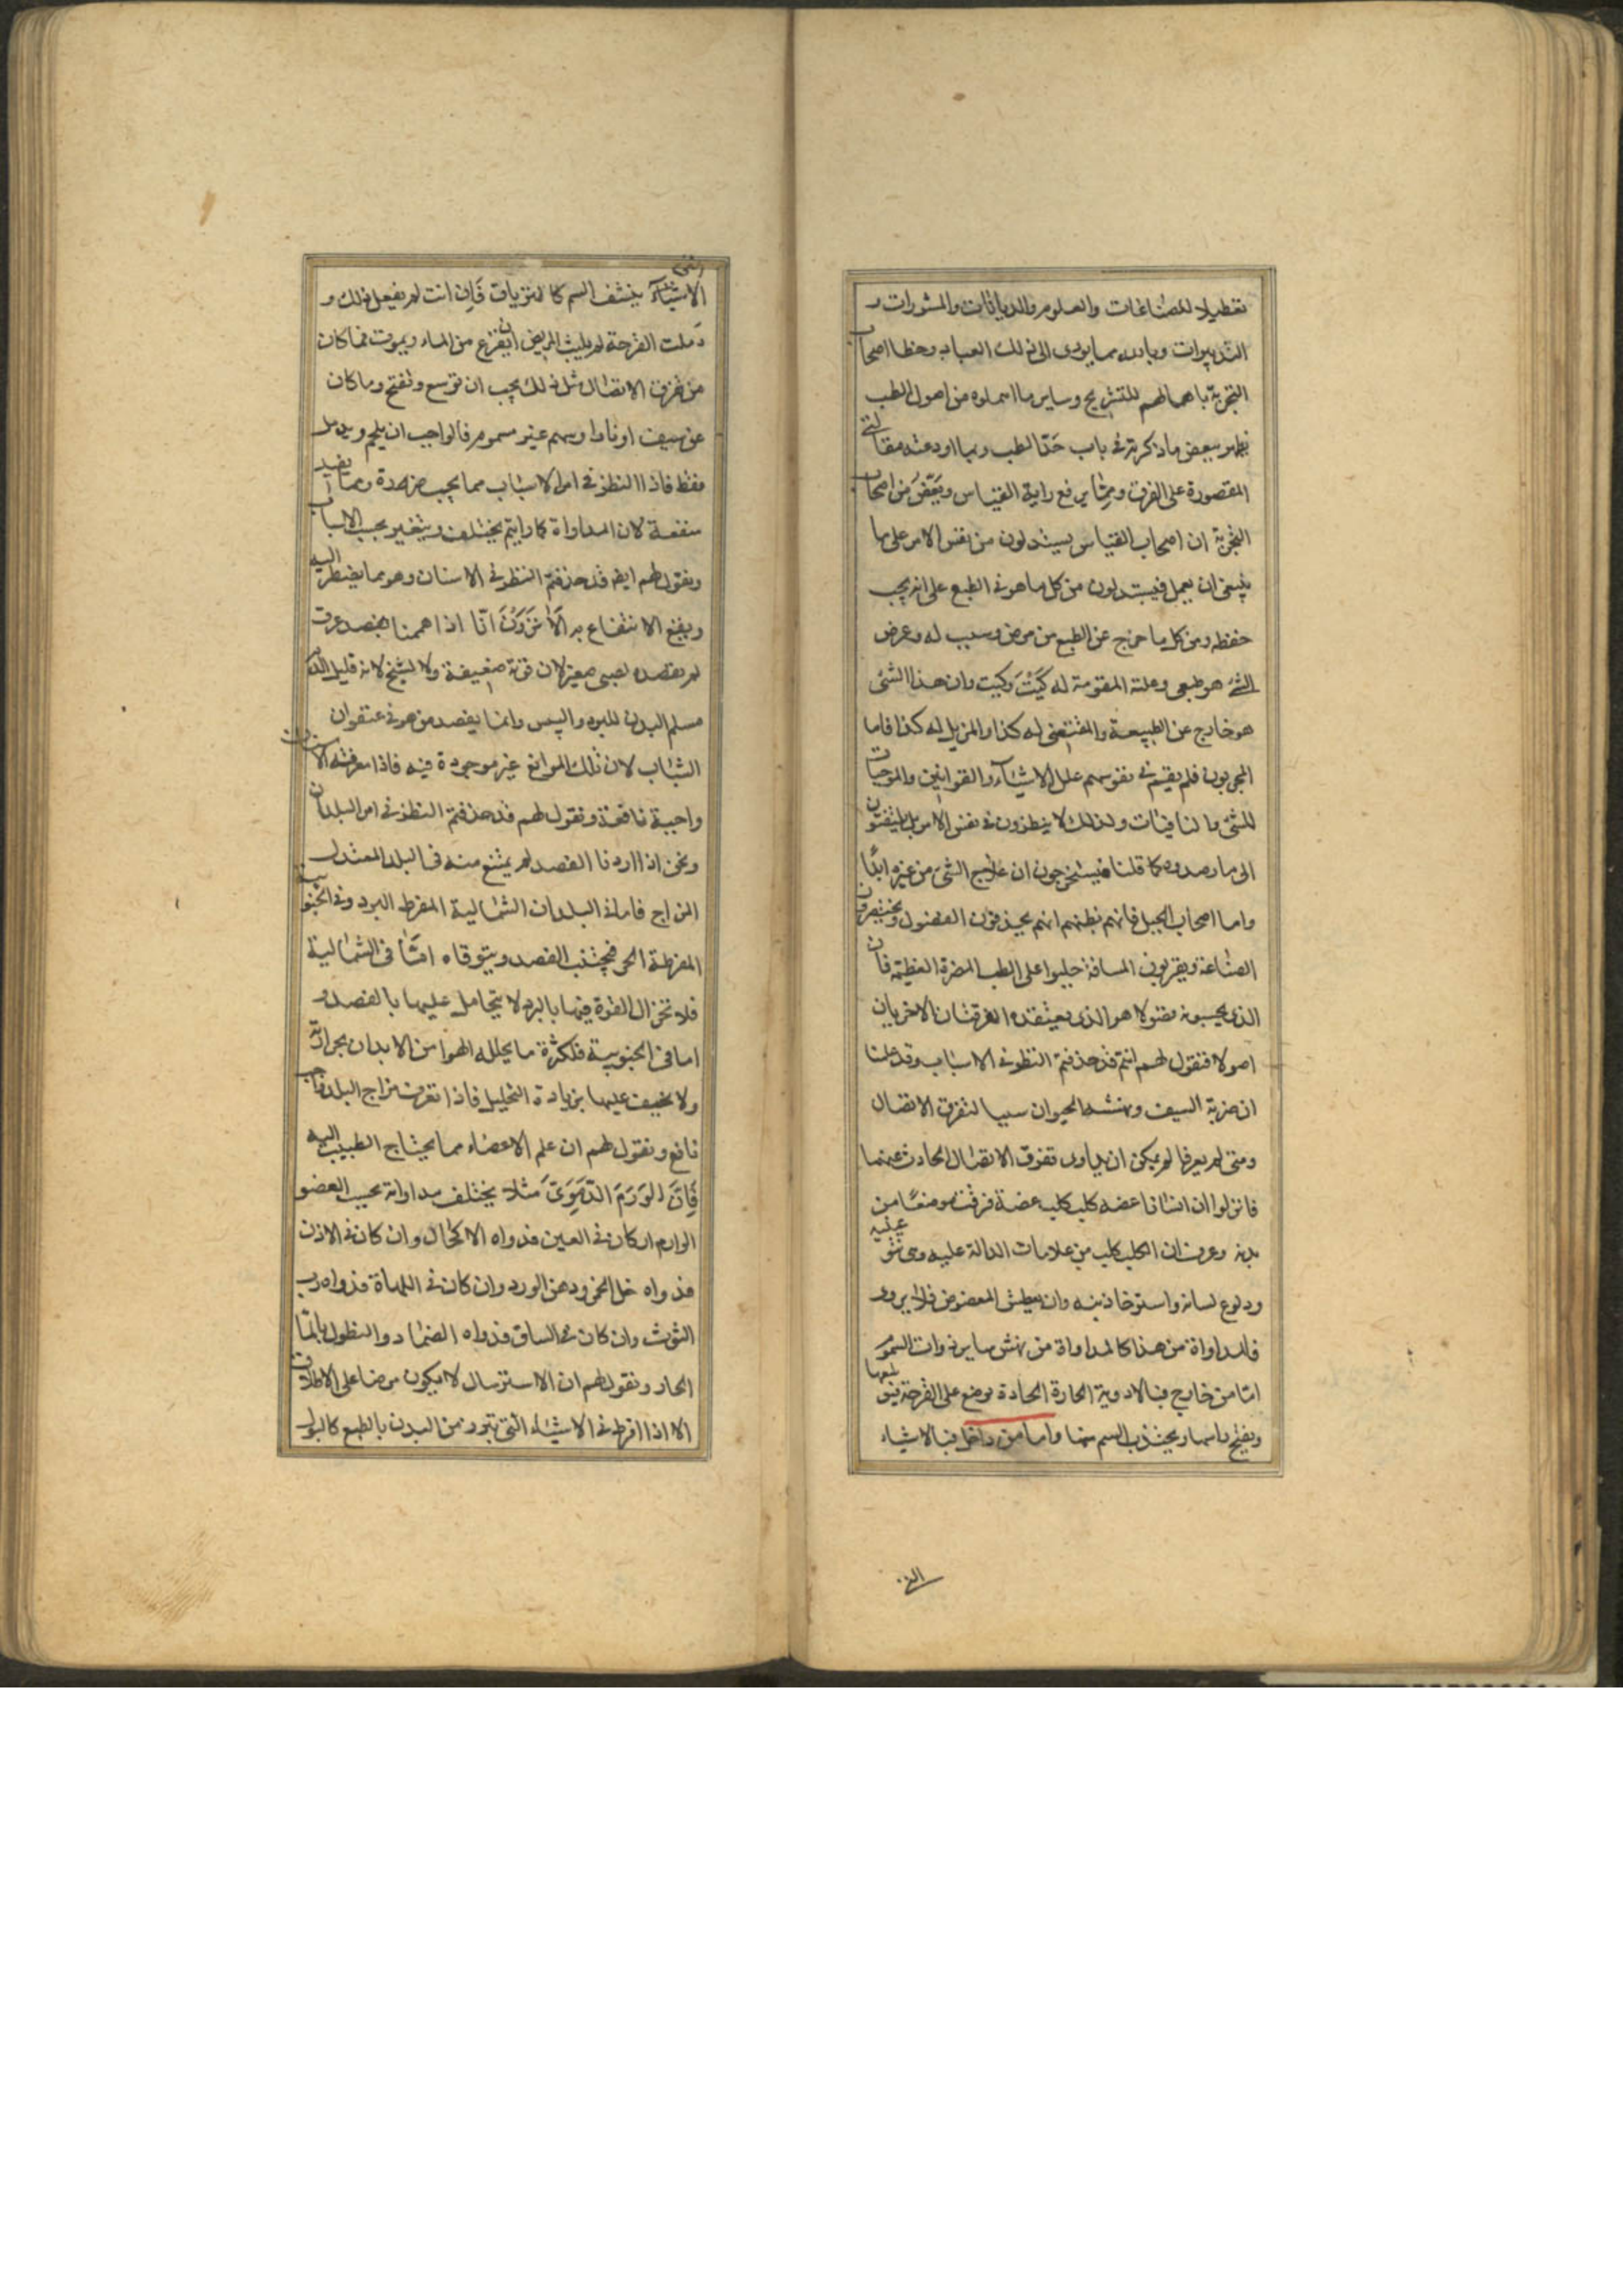 تعطيلا للصناعات والعلوم والديانات والمشورات و
التدبيرات وبادره مما يؤدى الى ذلك العباد وخطا اصحاب
التجربة باهمالهم للتشريح وساير ما اهملوه من اصول الطب
يظهر ببعض ما ذكرته فى باب حد الطب وبما اودعته مقالتى
المقصورة على الفرق ومما يرفع راية القياس ويغض من اصحاب
التجربة ان اصحاب القياس يستدلون من نفس الامر على ما
ينبغى ان يعمل فيستدلون من كل ما هو فى الطبع على انه يجب
حفظه ومن كل ما خرج عن الطبع من مرض وسبب له وعرض
الشئ هو طبعى وعلته المقومة له كيت وكيت وان هذا الشئ
هو خارج عن الطبيعة والمقتضى له كذا والمزيل له كذا فاما
المجربون فلم يقيسم فى نفوسهم علل الاشياء والقوانين والموجبات
للشئ والمنافيات ولذلك لا ينظرون فى نفس الامر بل يلتفتون
الى ما رصدوه كما قلنا فيستخرجون ان علاج الشئ من غيره ابدا
واما اصحاب الحيل فانهم بظنهم انهم يحذفون الفضول ويختصرون
الصناعة ويقربون المسافة جلبوا على الطب المضرة العظيمة فان
الذى يحسبونه مقولا هو الذى يعتقده الفرقتان الاخريان
اصولا فنقول لهم انتم قد حذفتم النظر فى الاسباب وقد علمنا
ان ضربة السيف ونهشه الحيوان سببا لتفرق الاتصال
ومتى لم يعرفا لم يمكن ان يداوى تفرق الاتصال الحادث عنهما
فانزلوا ان انسانا عضه كلب كلب عضة فرقت موضعا من
بدنه وعرف ان الكلب كلب من علامات الدالة عليه وهى نتو عينيه
ودلوع لسانه واسترخا ذنبه وان يعطش المعضوض فلا يرود
فالمداواة من هذا كالمداواة من نهش ساير ذوات السموم
اما من خارج فبالادوية الحارة الحادة يوضع على القرحة فيوسعها
ويفتح راسها ويجتذب السم منها واما من داخل فبالاشياء
التى
الاشياء التى ينشف السم كالترياق فان انت لم يفعل ذلك و
دملت القرحة لم يلبث المريض ان يفزع من الماء ويموت فما كان
من تفرق الاتصال مثل ذلك يجب ان توسع وتفتح وما كان
عن سيف او نار او سهم غير مسموم فالواجب ان يلحم ويدمل
فقط فاذا النظر فى امر الاسباب مما يجب ضرورة ومما يفيد
منفعة لان المداواة كما رايتم يختلف ويتغير بحسب الاسباب
ونقول لهم ايضا قد حذفتم النظر فى الاسنان وهو مما يضطر اليه
ويقع الانتفاع به الا ترون انا اذا هممنا بفصد عرق
لم نفصده لصبى صغير لان قوته ضعيفة ولا لشيخ لانه قليل الدم
مسلم البدن للبرد واليبس وانما يفصد من هو فى عنفوان
الشباب لان تلك الموانع غير موجودة فيه فاذا معرفته الاسنان
واجبة نافعة ونقول لهم قد حذفتم النظر فى امر البلدان
ونحن اذا اردنا الفصد لم يمتنع منه فى البلد المعتدل
المزاج فاما فى البلدان الشمالية المفرط البرد وفى الجنوبية
المفرطة الحر فيجتنب الفصد ويتوقاه اما فى الشمالية
فلانخزال القوة فيها بالبرد لا يتحامل عليها بالفصد و
اما فى الجنوبية فلكثرة ما يحلله الهوا من الابدان بحرارته
ولا نحيف عليها بزيادة التحليل فاذا تعرف مزاج البلد واجب
نافع ونقول لهم ان علم الاعضاء مما يحتاج الطبيب اليه
فان الورم الدموى مثلا يختلف مداواته بحسب العضو
الوارم ان كان فى العين فدواه الاكحال وان كان فى الاذن
فدواه خل الخمر ودهن الورد وان كان فى اللهاة فدواه رب
التوث وان كان فى الساق فدواه الضماد والنطول بالماء
الحار ونقول لهم ان الاسترسال لا يكون مرضا على الاطلاق
الا اذا افرط فى الاشياء التى تبرز من البدن بالطبع كالبول